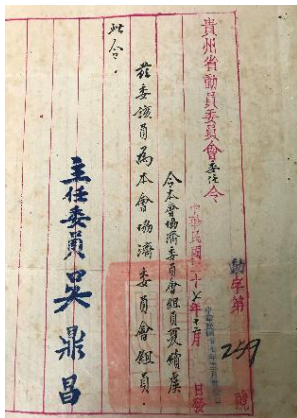 貴州省動員委員會委任令
動字第259號
中華民國二十七年十二月　日發
令本會協濟委員會組員夏續虞
茲委該員為本會協濟委員會組員．
此令．
主任委員吳鼎昌